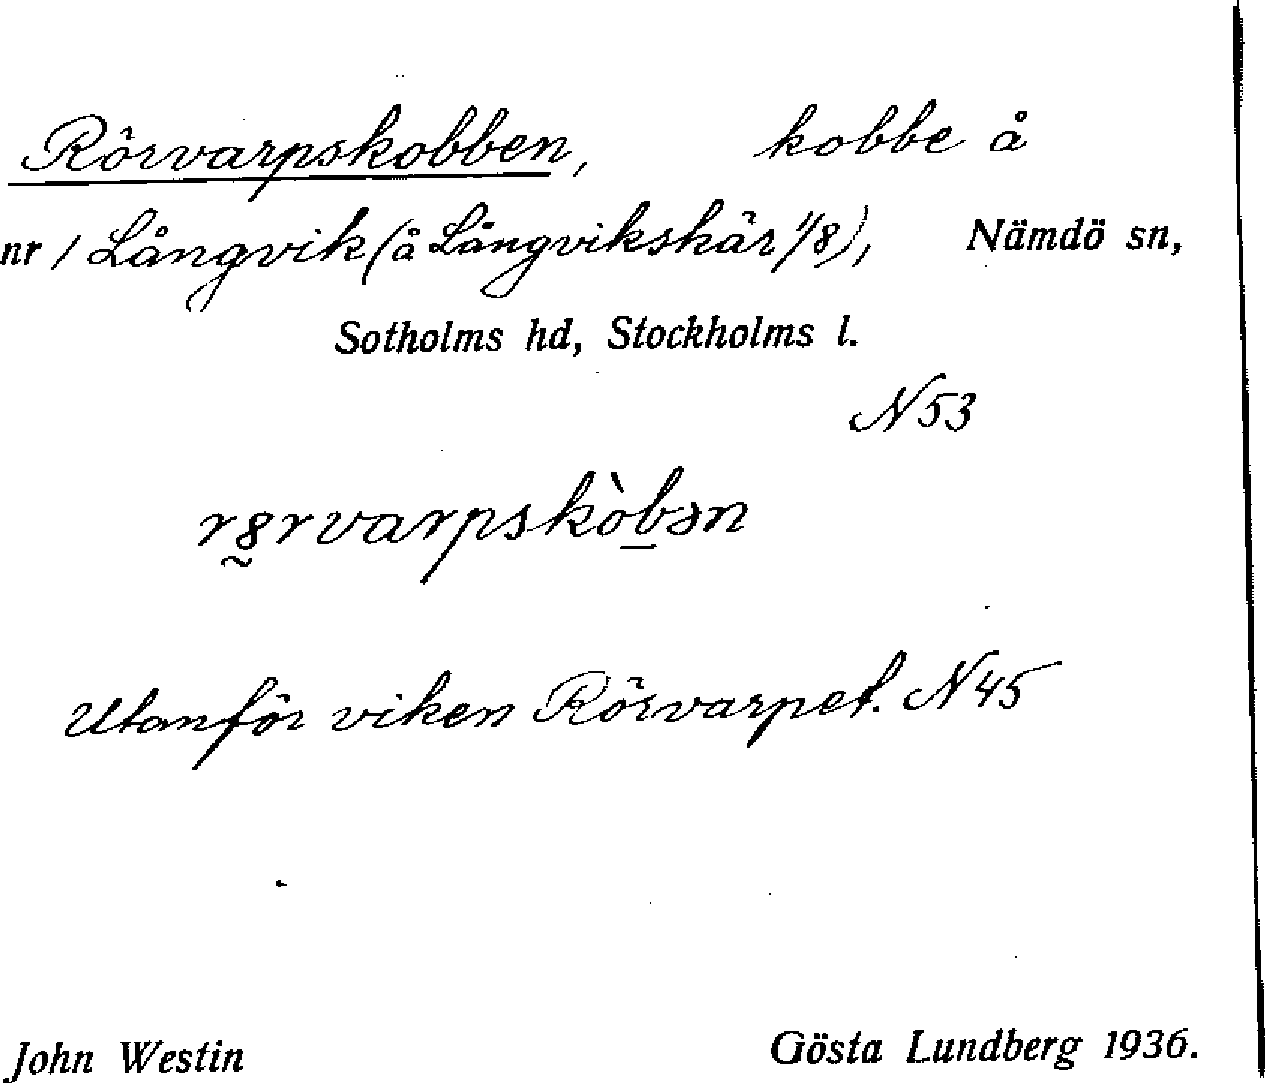 Rörvarpskobben, kobbe å
nr 1 Långvik (å Långvikskär 1/8), Nämdö sn,
Sotholms hd, Stockholms l.
N 53
rȣrvarpskòbən
Utanför viken Rörvarpet. N 45
John Westin Gösta Lundberg 1936.